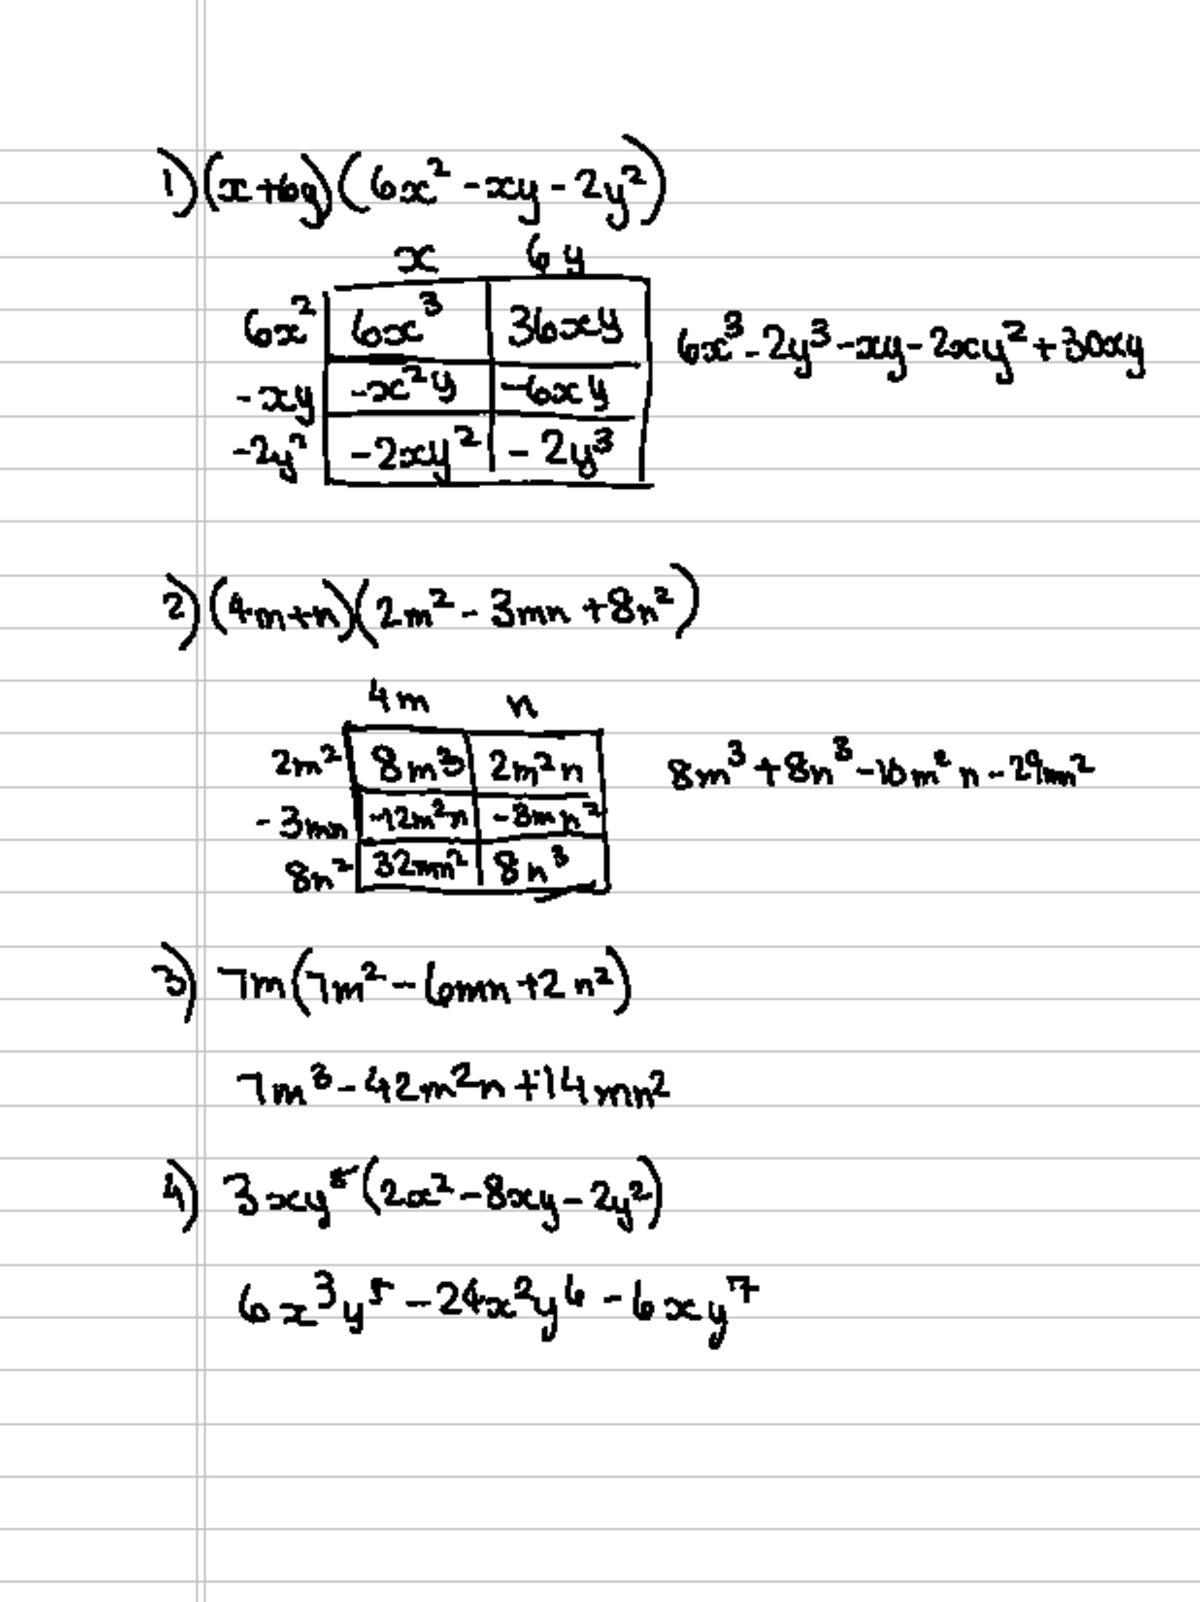 1) (x+6y)(6x² - xy - 2y²)
x 6y
6x² 6x³ 36xy
-xy -x²y -6xy
-2y² -2xy² -2y³
6x³ - 2y³ - xy - 2xy² + 30xy
2) (4m+n)(2m² - 3mn + 8n²)
4m n
2m² 8m³ 2m²n
-3mn -12m²n -3mn²
8n² 32mn² 8n³
8m³ + 8n³ - 10m²n - 29mn²
3) 7m(7m² - 6mn + 2n²)
7m³ - 42m²n + 14mn²
4) 3xy⁵(2x² - 8xy - 2y²)
6x³y⁵ - 24x²y⁶ - 6xy⁷